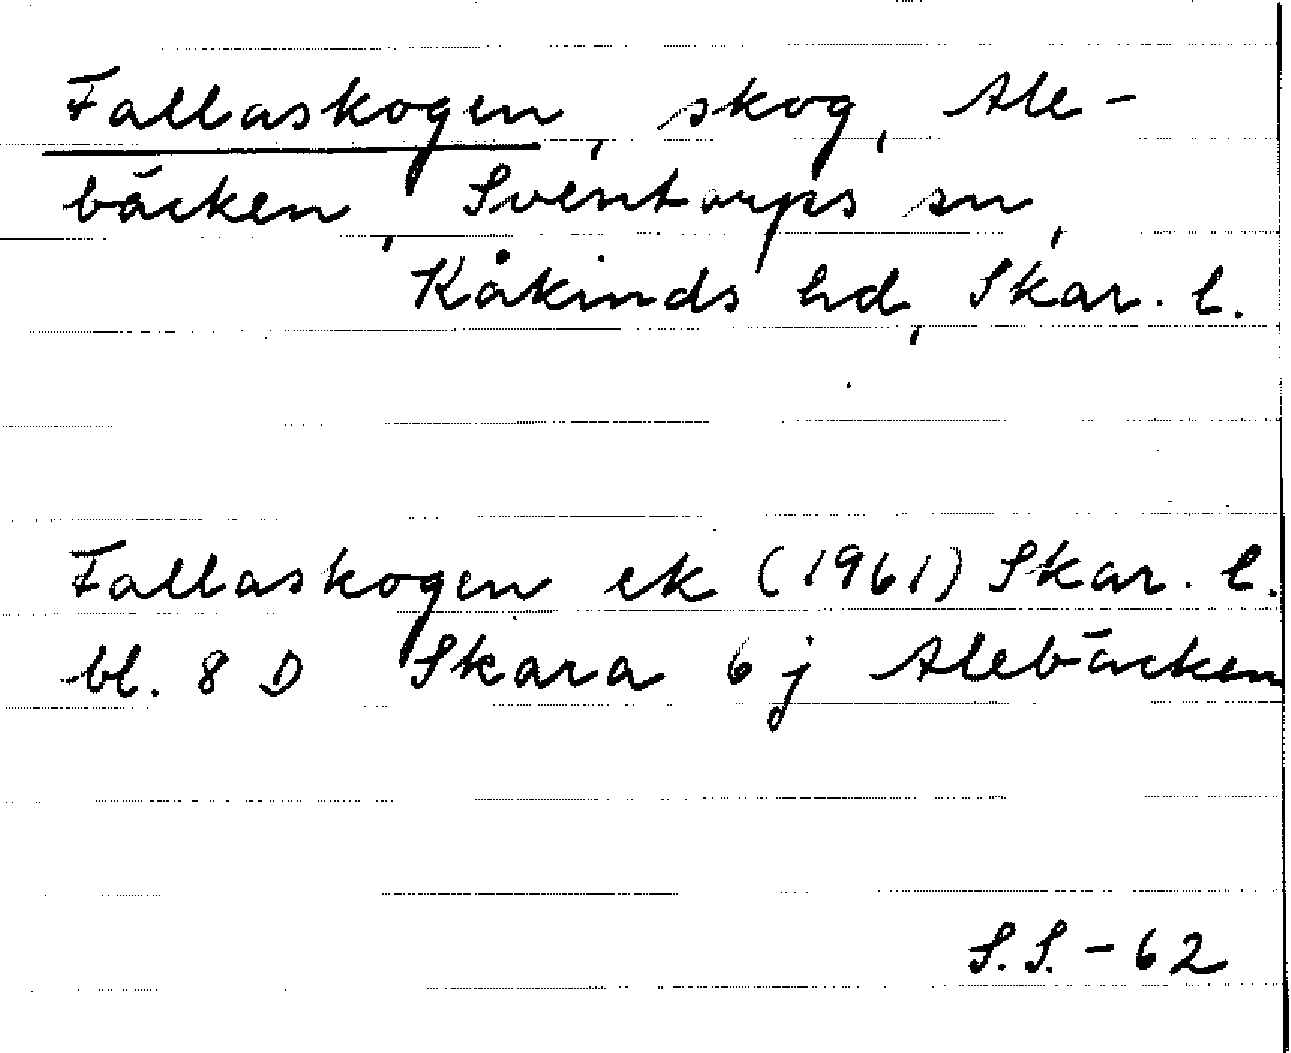 Fallaskogen, skog, Ale-
bäcken, Sventorps sn,
Kåkinds hd, Skar. l.
Fallaskogen ek (1961) Skar. l.
bl. 8 D Skara 6 j Alebäcken
S.S. - 62